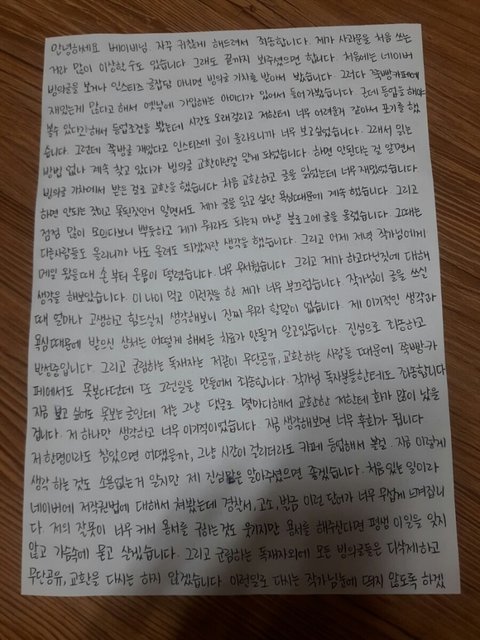 안녕하세요 베이비님. 자꾸 귀찮게 해드려서 죄송합니다. 제가 사과문을 처음 쓰는
거라 많이 이상할 수도 있습니다. 그래도 끝까지 봐주셨으면 합니다. 처음에는 네이버
빙의글을 보거나 인스티즈 글잡담 아니면 빙의글 기차를 받아서 봤습니다. 그러다 쭉빵카페에
재밌는게 많다고 해서 옛날에 가입해놓은 아이디가 있어서 들어가봤습니다. 근데 등업을 해야
볼 수 있다고해서 등업조건을 봤는데 시간도 오래걸리고 저한테 너무 어려울거 같아서 포기를 했
습니다. 그런데 쭉빵글 재밌다고 인스타에 글이 올라오니까 너무 보고싶었습니다. 그래서 읽는
방법 없나 계속 찾고 있다가 빙의글 교환이란걸 알게 되었습니다. 하면 안된다는 걸 알면서
빙의글 기차에서 받은 걸로 교환을 했습니다. 처음 교환하고 글을 읽었는데 너무 재밌었습니다
하면 안되는 것이고 못된짓인거 알면서도 제가 글을 읽고 싶단 욕심때문에 계속 했습니다. 그리고
점점 많이 모인다보니 뿌듯하고 제가 뭐라도 되는지 마냥 블로그에 글을 올렸습니다. 그때는
다른사람들도 올리니까 나도 올려도 되겠지란 생각을 했습니다. 그리고 어제 저녁 작가님에게
메일 왔을때 손부터 온몸이 떨렸습니다. 너무 무서웠습니다. 그리고 제가 하고다닌것에 대해
생각을 해보았습니다. 이 나이 먹고 이런짓을 한 제가 너무 부끄럽습니다. 작가님이 글을 쓰실
때 얼마나 고생하고 힘드실지 생각해보니 진짜 뭐라 할말이 없습니다. 제 이기적인 생각과
욕심때문에 받으신 상처는 어떻게 해서든 치료가 안될거 알고있습니다. 진심으로 죄송하고
반성중입니다. 그리고 군림하는 독재자는 저같이 무단공유, 교환하는 사람들 때문에 쭉빵카
페에서도 못본다던데 또 그런일을 만들어서 죄송합니다. 작가님 독자분들한테도 죄송합니다
지금 보고 싶어도 못보는 글인데 저는 그냥 댓글로 몇마디해서 교환한 저한테 화가 많이 났을
겁니다. 저 하나만 생각하고 너무 이기적이었습니다. 지금 생각해보면 너무 후회가 됩니다
저 한명이라도 참았으면 어땠을까, 그냥 시간이 걸리더라도 카페 등업해서 볼걸. 지금 이렇게
생각 하는것도 소용없는거 알지만 제 진심만은 알아주셨으면 좋겠습니다. 처음 있는 일이라
네이버에 저작권법에 대해서 쳐봤는데 경찰서, 고소, 벌금 이런 단어가 너무 무섭게 느껴집니
다. 저의 잘못이 너무 커서 용서를 구하는것도 웃기지만 용서를 해주신다면 평생 이일을 잊지
않고 가슴에 묻고 살겠습니다. 그리고 군림하는 독재자외에 모든 빙의글들은 다삭제하고
무단공유, 교환을 다시는 하지 않겠습니다. 이런일로 다시는 작가님눈에 띄지 않도록 하겠